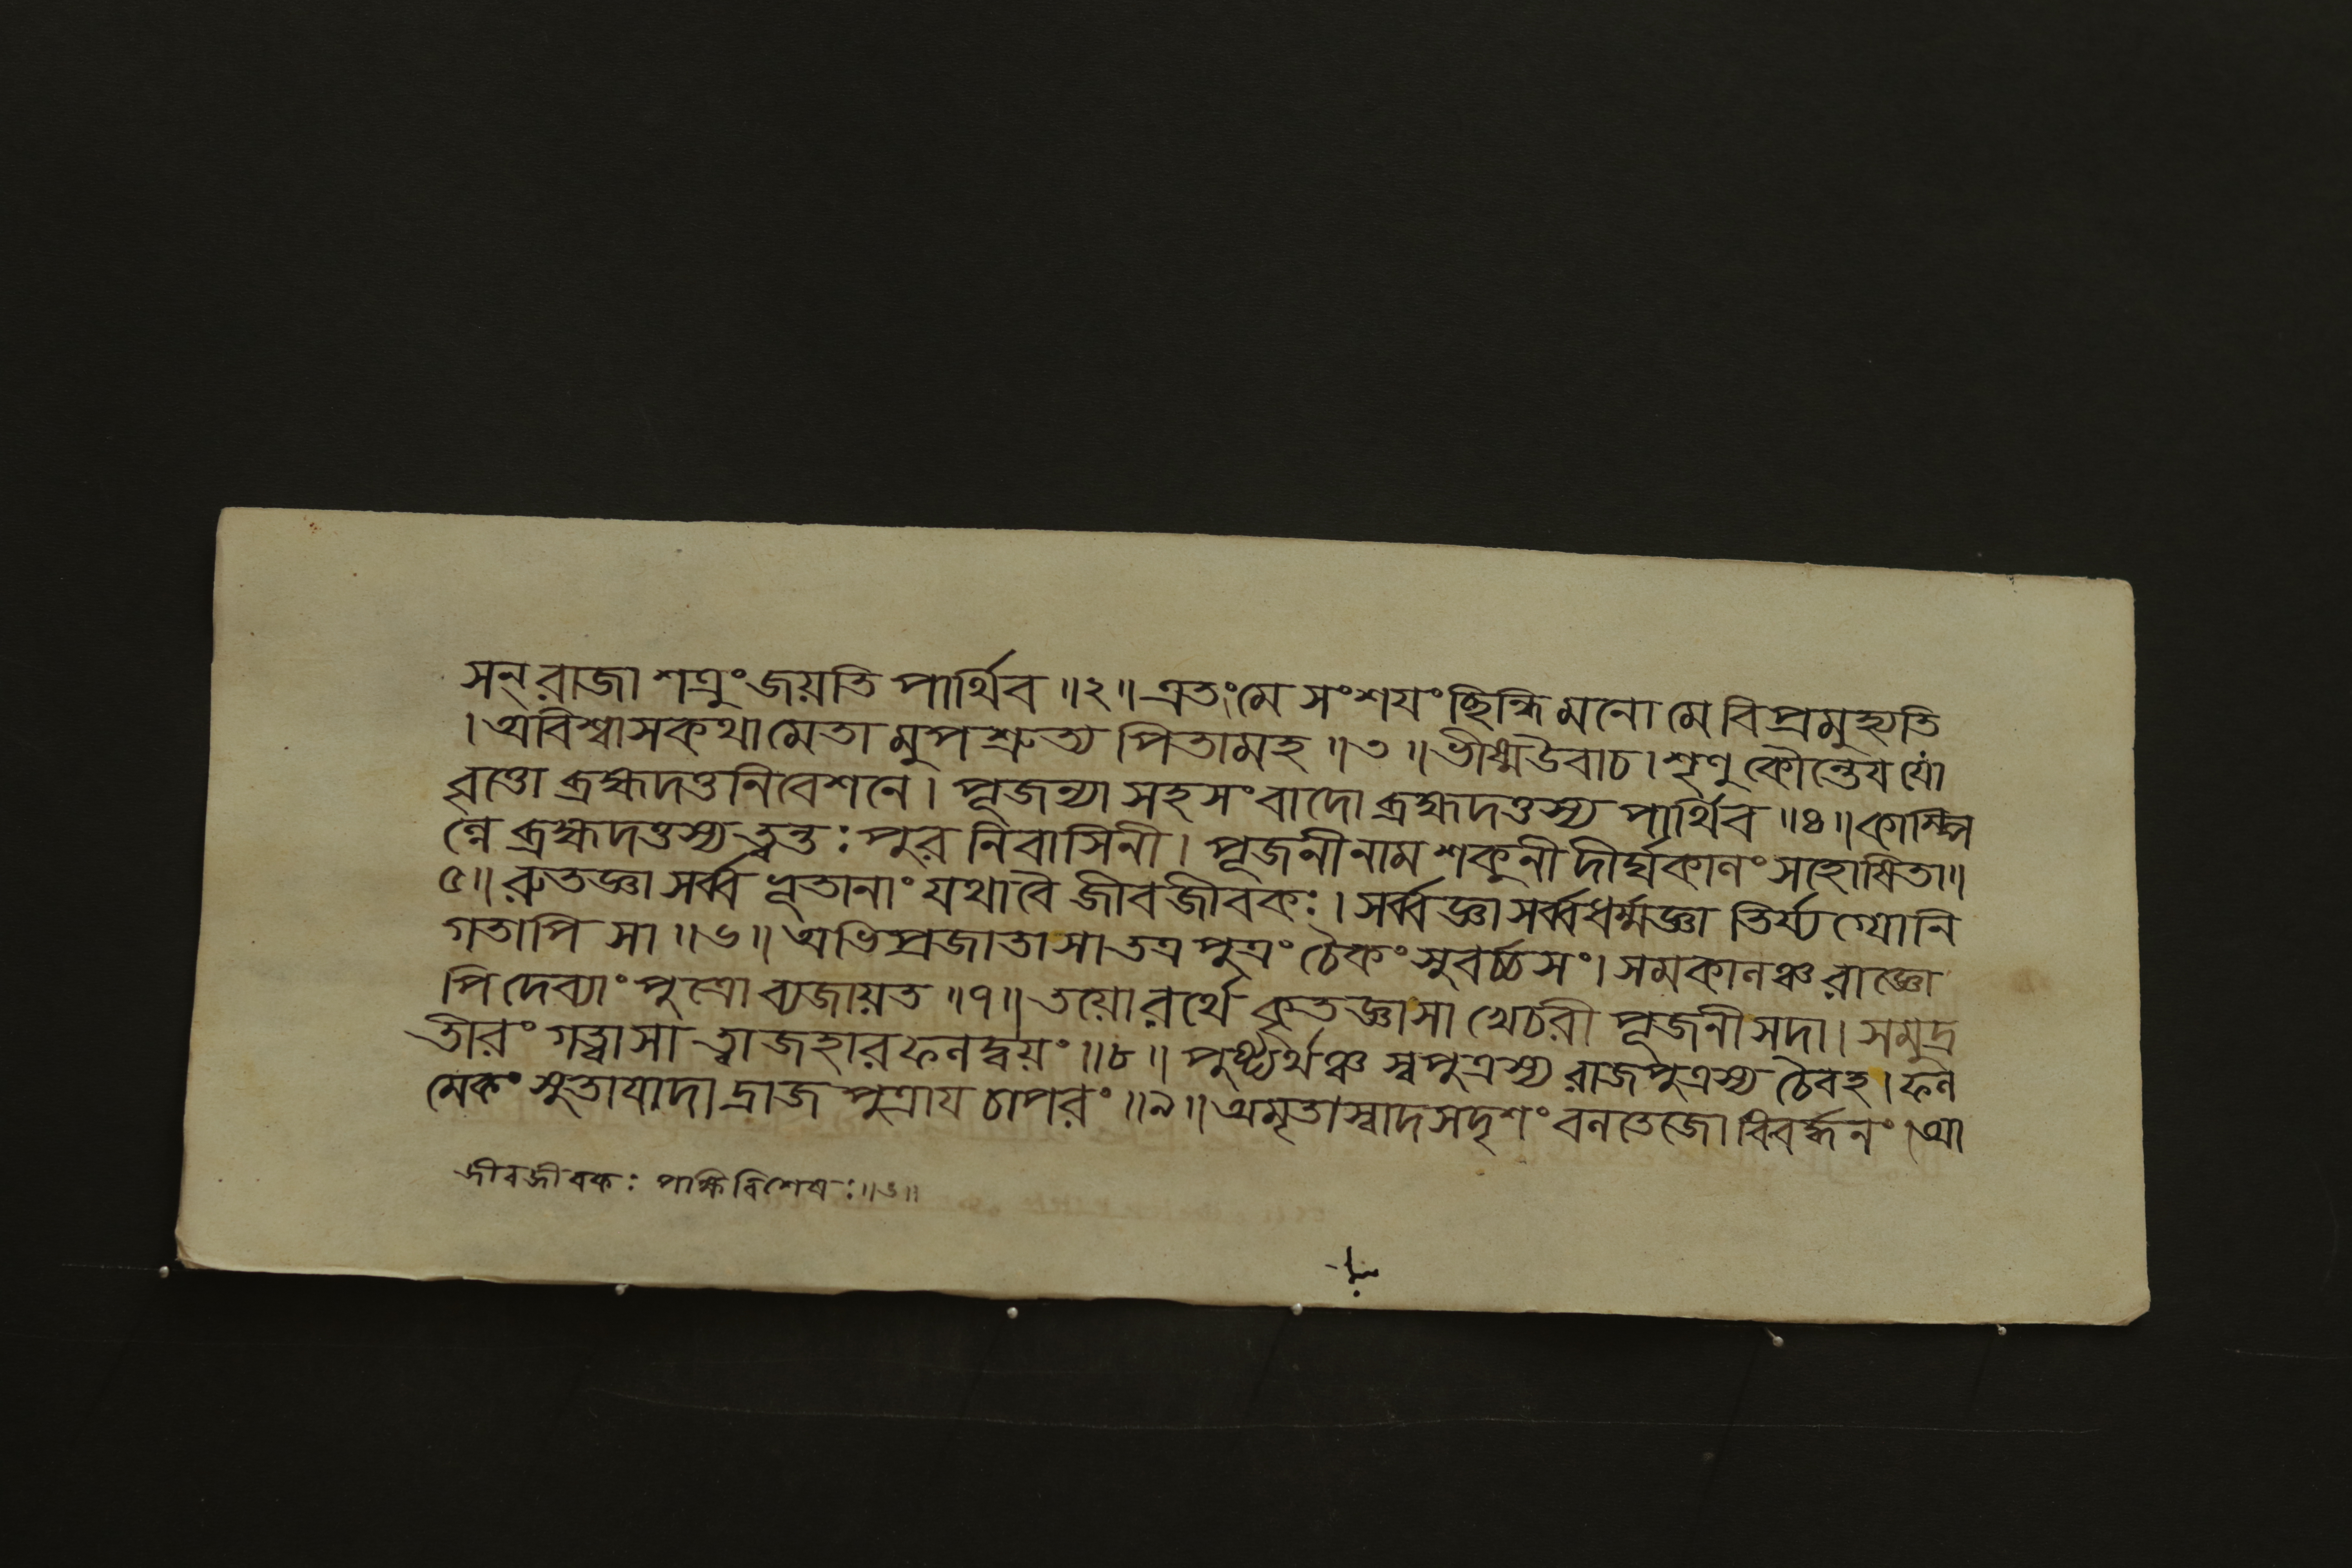 সন্ রাজা শত্রুং জয়তি পার্থিব ॥২॥ এতং মে সংশযং ছিন্ধি মনো মে বিপ্রমুহ্যতি
। অবিশ্বাসকথামেতামুপশ্রুত্য পিতামহ ॥৩॥ ভীষ্মউবাচ । শৃণু কৌন্তেয যো
বৃত্তো ব্রহ্মদত্তনিবেশনে । পূজন্যা সহ সংবাদো ব্রহ্মদত্তস্য পার্থিব ॥৪॥ কাম্পি
ল্যে ব্রহ্মদত্তস্য ত্বন্তঃপুরনিবাসিনী । পূজনী নাম শকুনী দীর্ঘকালং সহোষিতা॥
৫॥ রুতজ্ঞা সর্ব্বভূতানাং যথা বৈ জীবজীবকঃ । সর্ব্বজ্ঞা সর্ব্বধর্ম্মজ্ঞা তির্য্যগ্যোনি
গতাপি সা ॥৬॥ অভিপ্রজাতা সা তত্র পুত্রং চৈকং সুবর্চ্চসং । সমকালঞ্চ রাজ্ঞো
পি দেব্যাং পুত্রো ব্যজায়ত ॥৭॥ তয়োরর্থে কৃতজ্ঞা সা খেচরী পূজনী সদা । সমুদ্র
তীরং গত্বা সা ত্বাজহার ফলদ্বয়ং ॥৮॥ পুষ্ট্যর্থঞ্চ স্বপুত্রস্য রাজপুত্রস্য চৈব হ । ফল
মেকং সুতাযাদাদ্রাজপুত্রায চাপরং ॥৯॥ অমৃতাস্বাদসদৃশং বলতেজোবিবর্দ্ধনং । আ
জীবজীবকঃ পক্ষিবিশেষঃ ॥৬॥